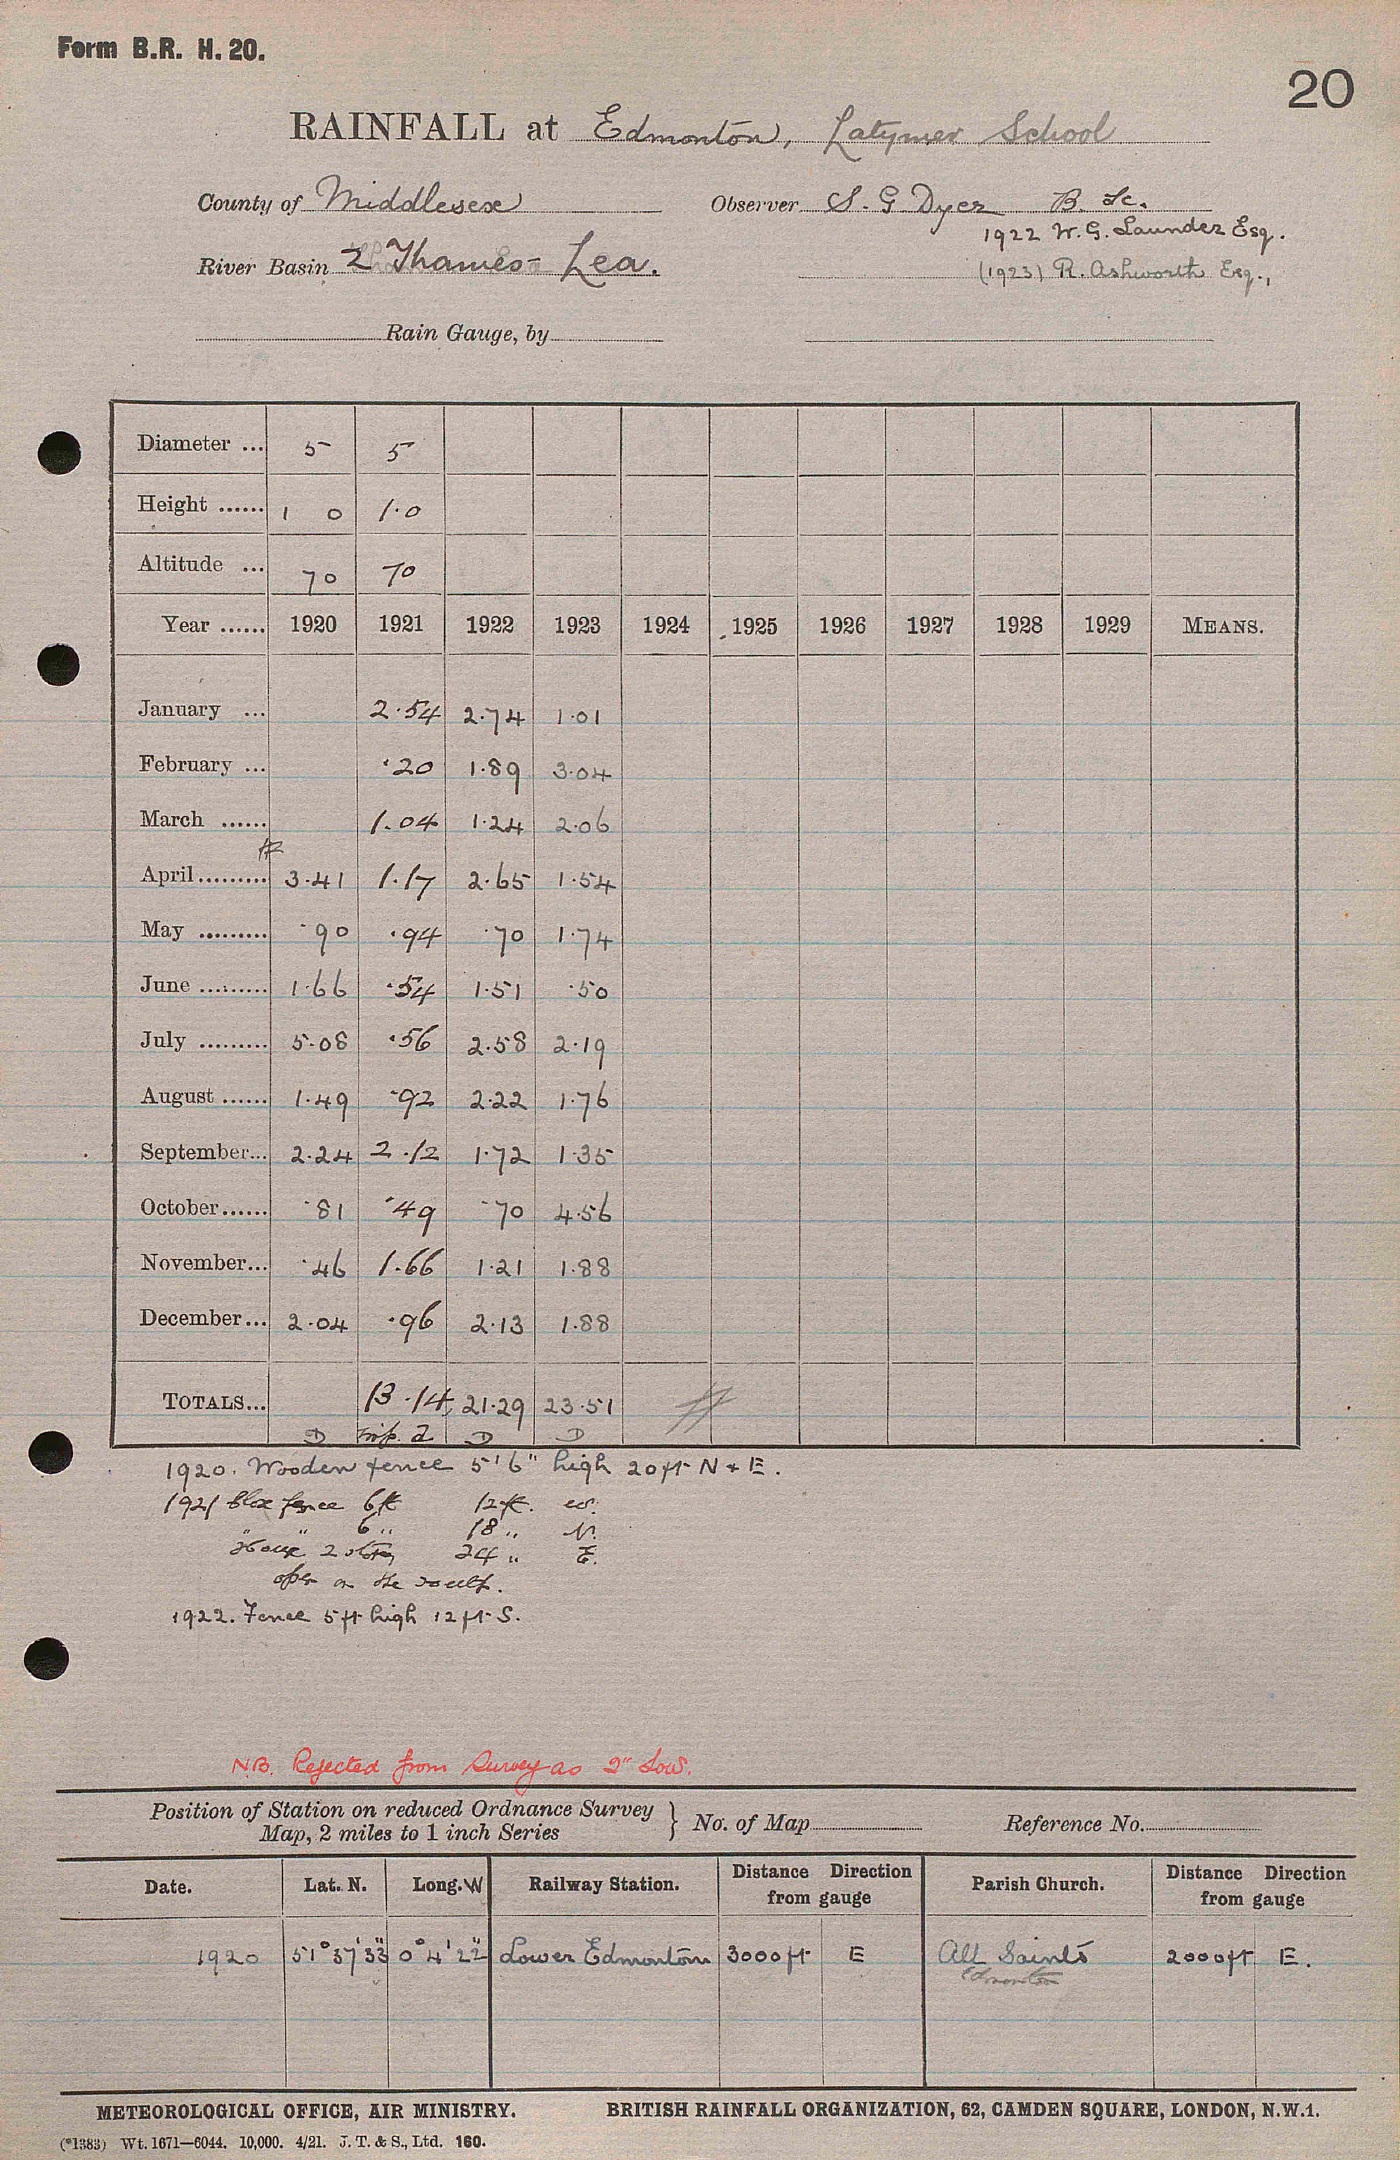 Form B.R. H. 20.
20
RAINFALL at Edmonton, Latymer School
County of Middlesex Observer S. G. Dyer B. Sc.
1922 W. G. Launder Esq.
River Basin 2 Thames - Lea. (1923) R. Ashworth Esq.,
Rain Gauge, by
Diameter ... 5 5
Height ...... 1 0 1.0
Altitude ... 70 70
Year ...... 1920 1921 1922 1923 1924 1925 1926 1927 1928 1929 MEANS.
January ... 2.54 2.74 1.01
February ... .20 1.89 3.04
March ...... 1.04 1.24 2.06
April......... 3.41 1.17 2.65 1.54
May ......... .90 .94 .70 1.74
June ......... 1.66 .54 1.51 .50
July ......... 5.08 .56 2.58 2.19
August ...... 1.49 .92 2.22 1.76
September... 2.24 2.12 1.72 1.35
October...... .81 .49 .70 4.56
November... .46 1.66 1.21 1.88
December... 2.04 .96 2.13 1.88
TOTALS... 13.14 21.29 23.51
D D D
1920. Wooden fence 5'6" high 20ft N & E.
1921 fence 6ft 12ft. W.
" " 6 " 18 " N.
House 2 story 24 " E.
open on the south.
1922. Fence 5ft high 12ft S.
N.B. Rejected from Survey as 2" low.
Position of Station on reduced Ordnance Survey
Map, 2 miles to 1 inch Series } No. of Map Reference No.
Date. Lat. N. Long. W Railway Station. Distance Direction from gauge Parish Church. Distance Direction from gauge
1920 51° 37' 33" 0° 4' 22" Lower Edmonton 3000ft E All Saints 2000ft E.
Edmonton
METEOROLOGICAL OFFICE, AIR MINISTRY. BRITISH RAINFALL ORGANIZATION, 62, CAMDEN SQUARE, LONDON, N.W.1.
(*1383) Wt. 1671—6044. 10,000. 4/21. J. T. & S., Ltd. 160.